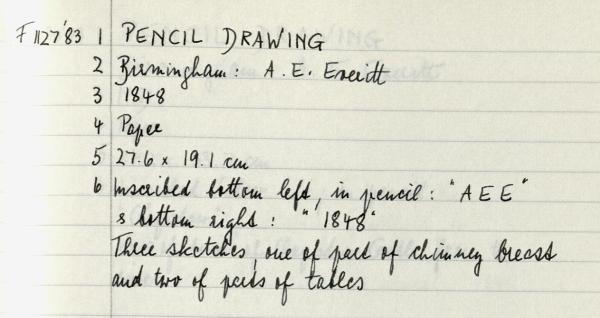 F1127'83 1 PENCIL DRAWING
2 Birmingham: A. E. Everitt
3 1848
4 Paper
5 27.6 x 19.1 cm
6 Inscribed bottom left, in pencil: "A E E"
& bottom right: "1848"
Three sketches, one of part of chimney breast
and two of parts of tables